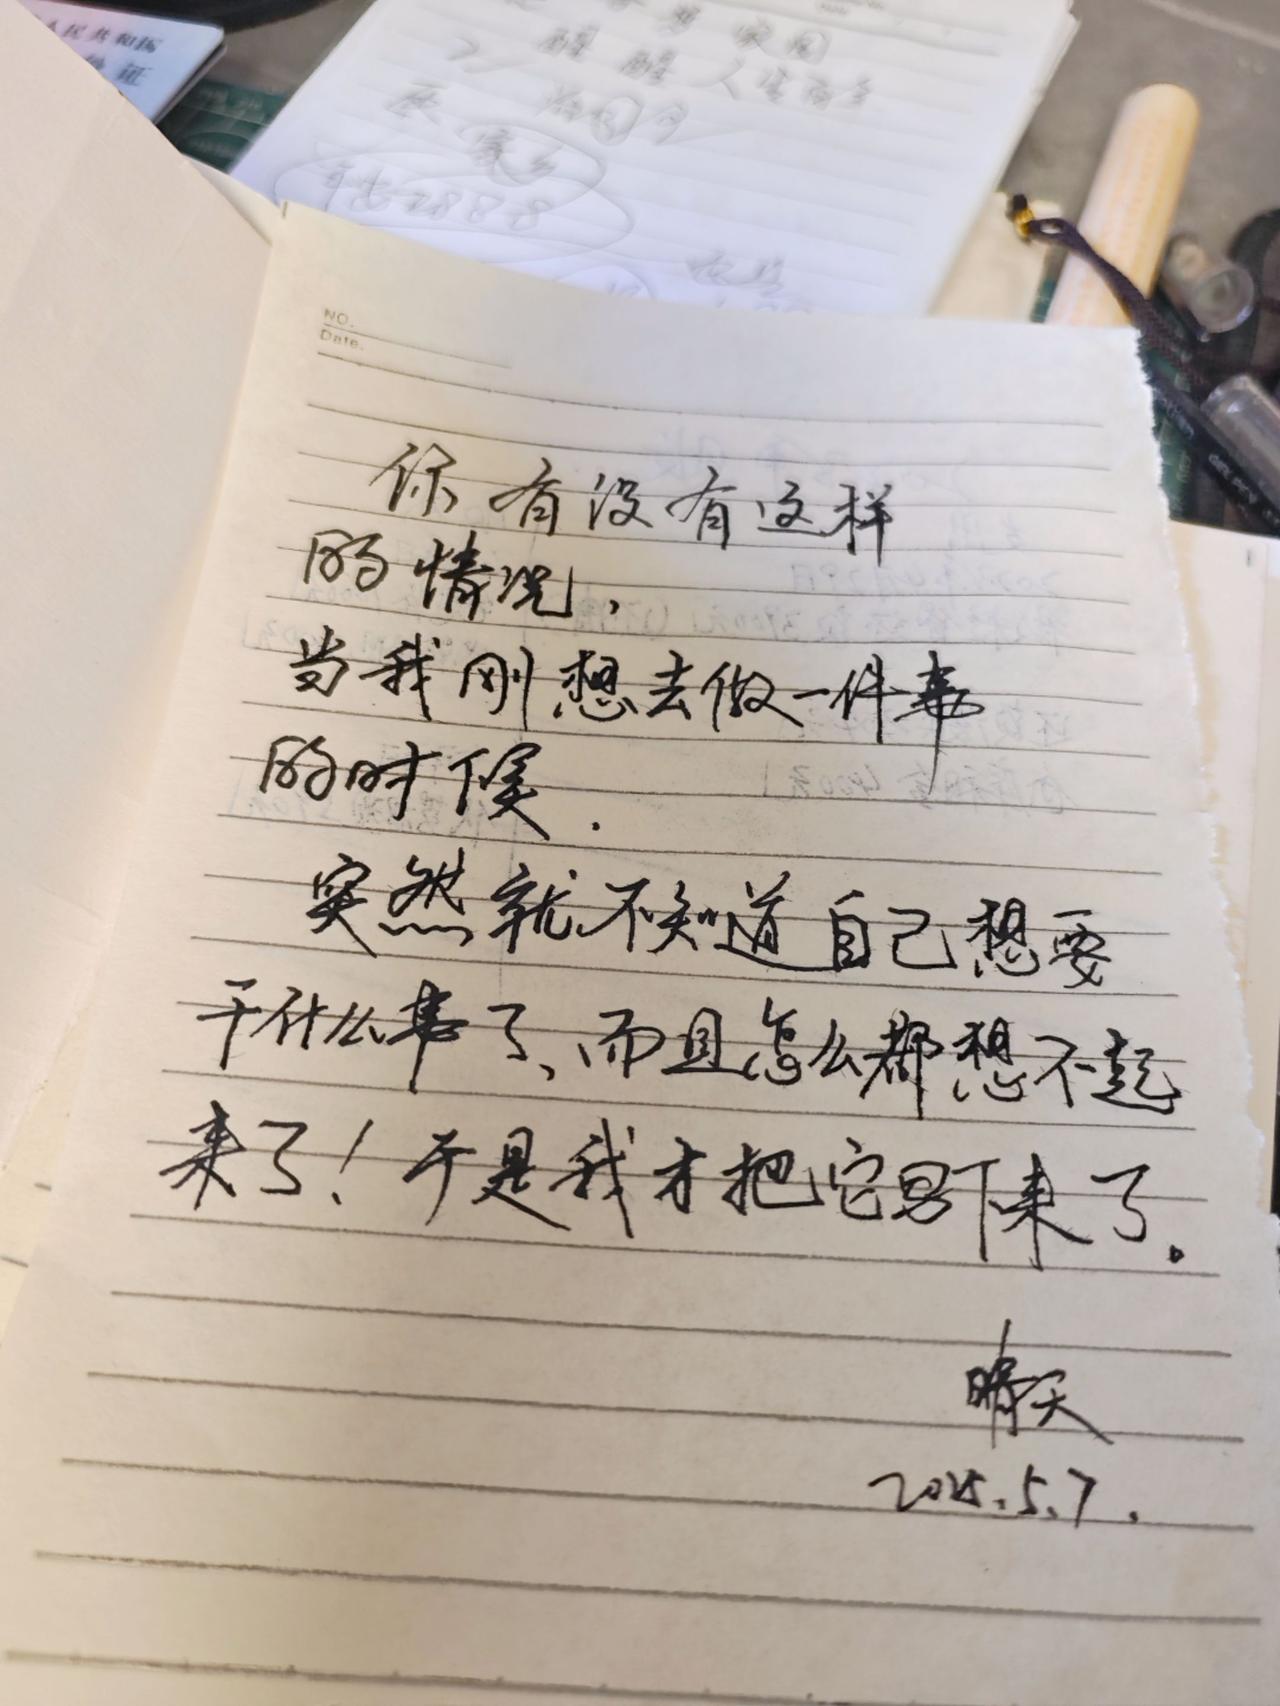 人民共和国
份证
醒醒人生
2888
NO.
Date.
你有没有这样
的情况，
当我刚想去做一件事
的时候．
突然就不知道自己想要
干什么事了、而且怎么都想不起
来了！于是我才把它写下来了。
晴天
2025.5.7.